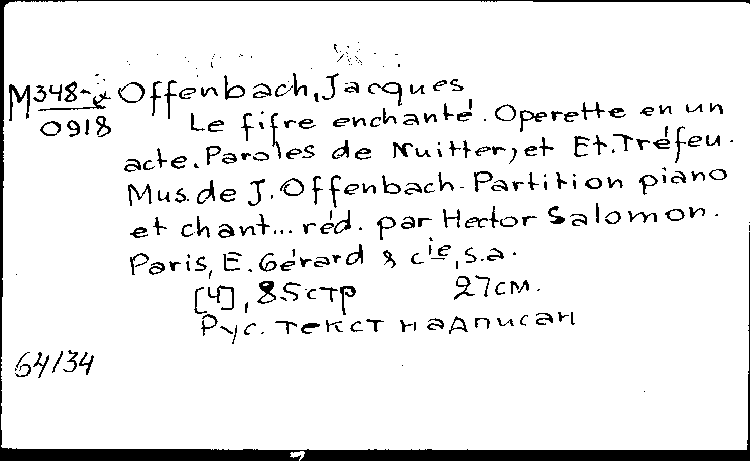 М348-2 Offenbach, Jacques
0918 Le fifre enchanté. Operette en un
acte. Paroles de Nuitter, et Et. Tréfeu.
Mus. de J. Offenbach. Partition piano
et chant... réd. par Hector Salomon.
Paris, E. Gérard & cie, s.a.
[4], 85 стр 27 см.
Рус. текст надписан
64/34